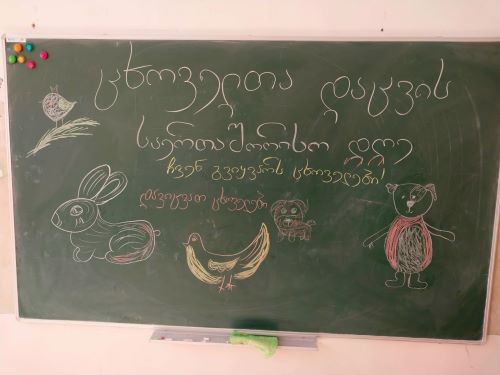 ცხოველთა დაცვის
საერთაშორისო დღე
ჩვენ გვიყვარს ცხოველები!
დავიცვათ ცხოველები